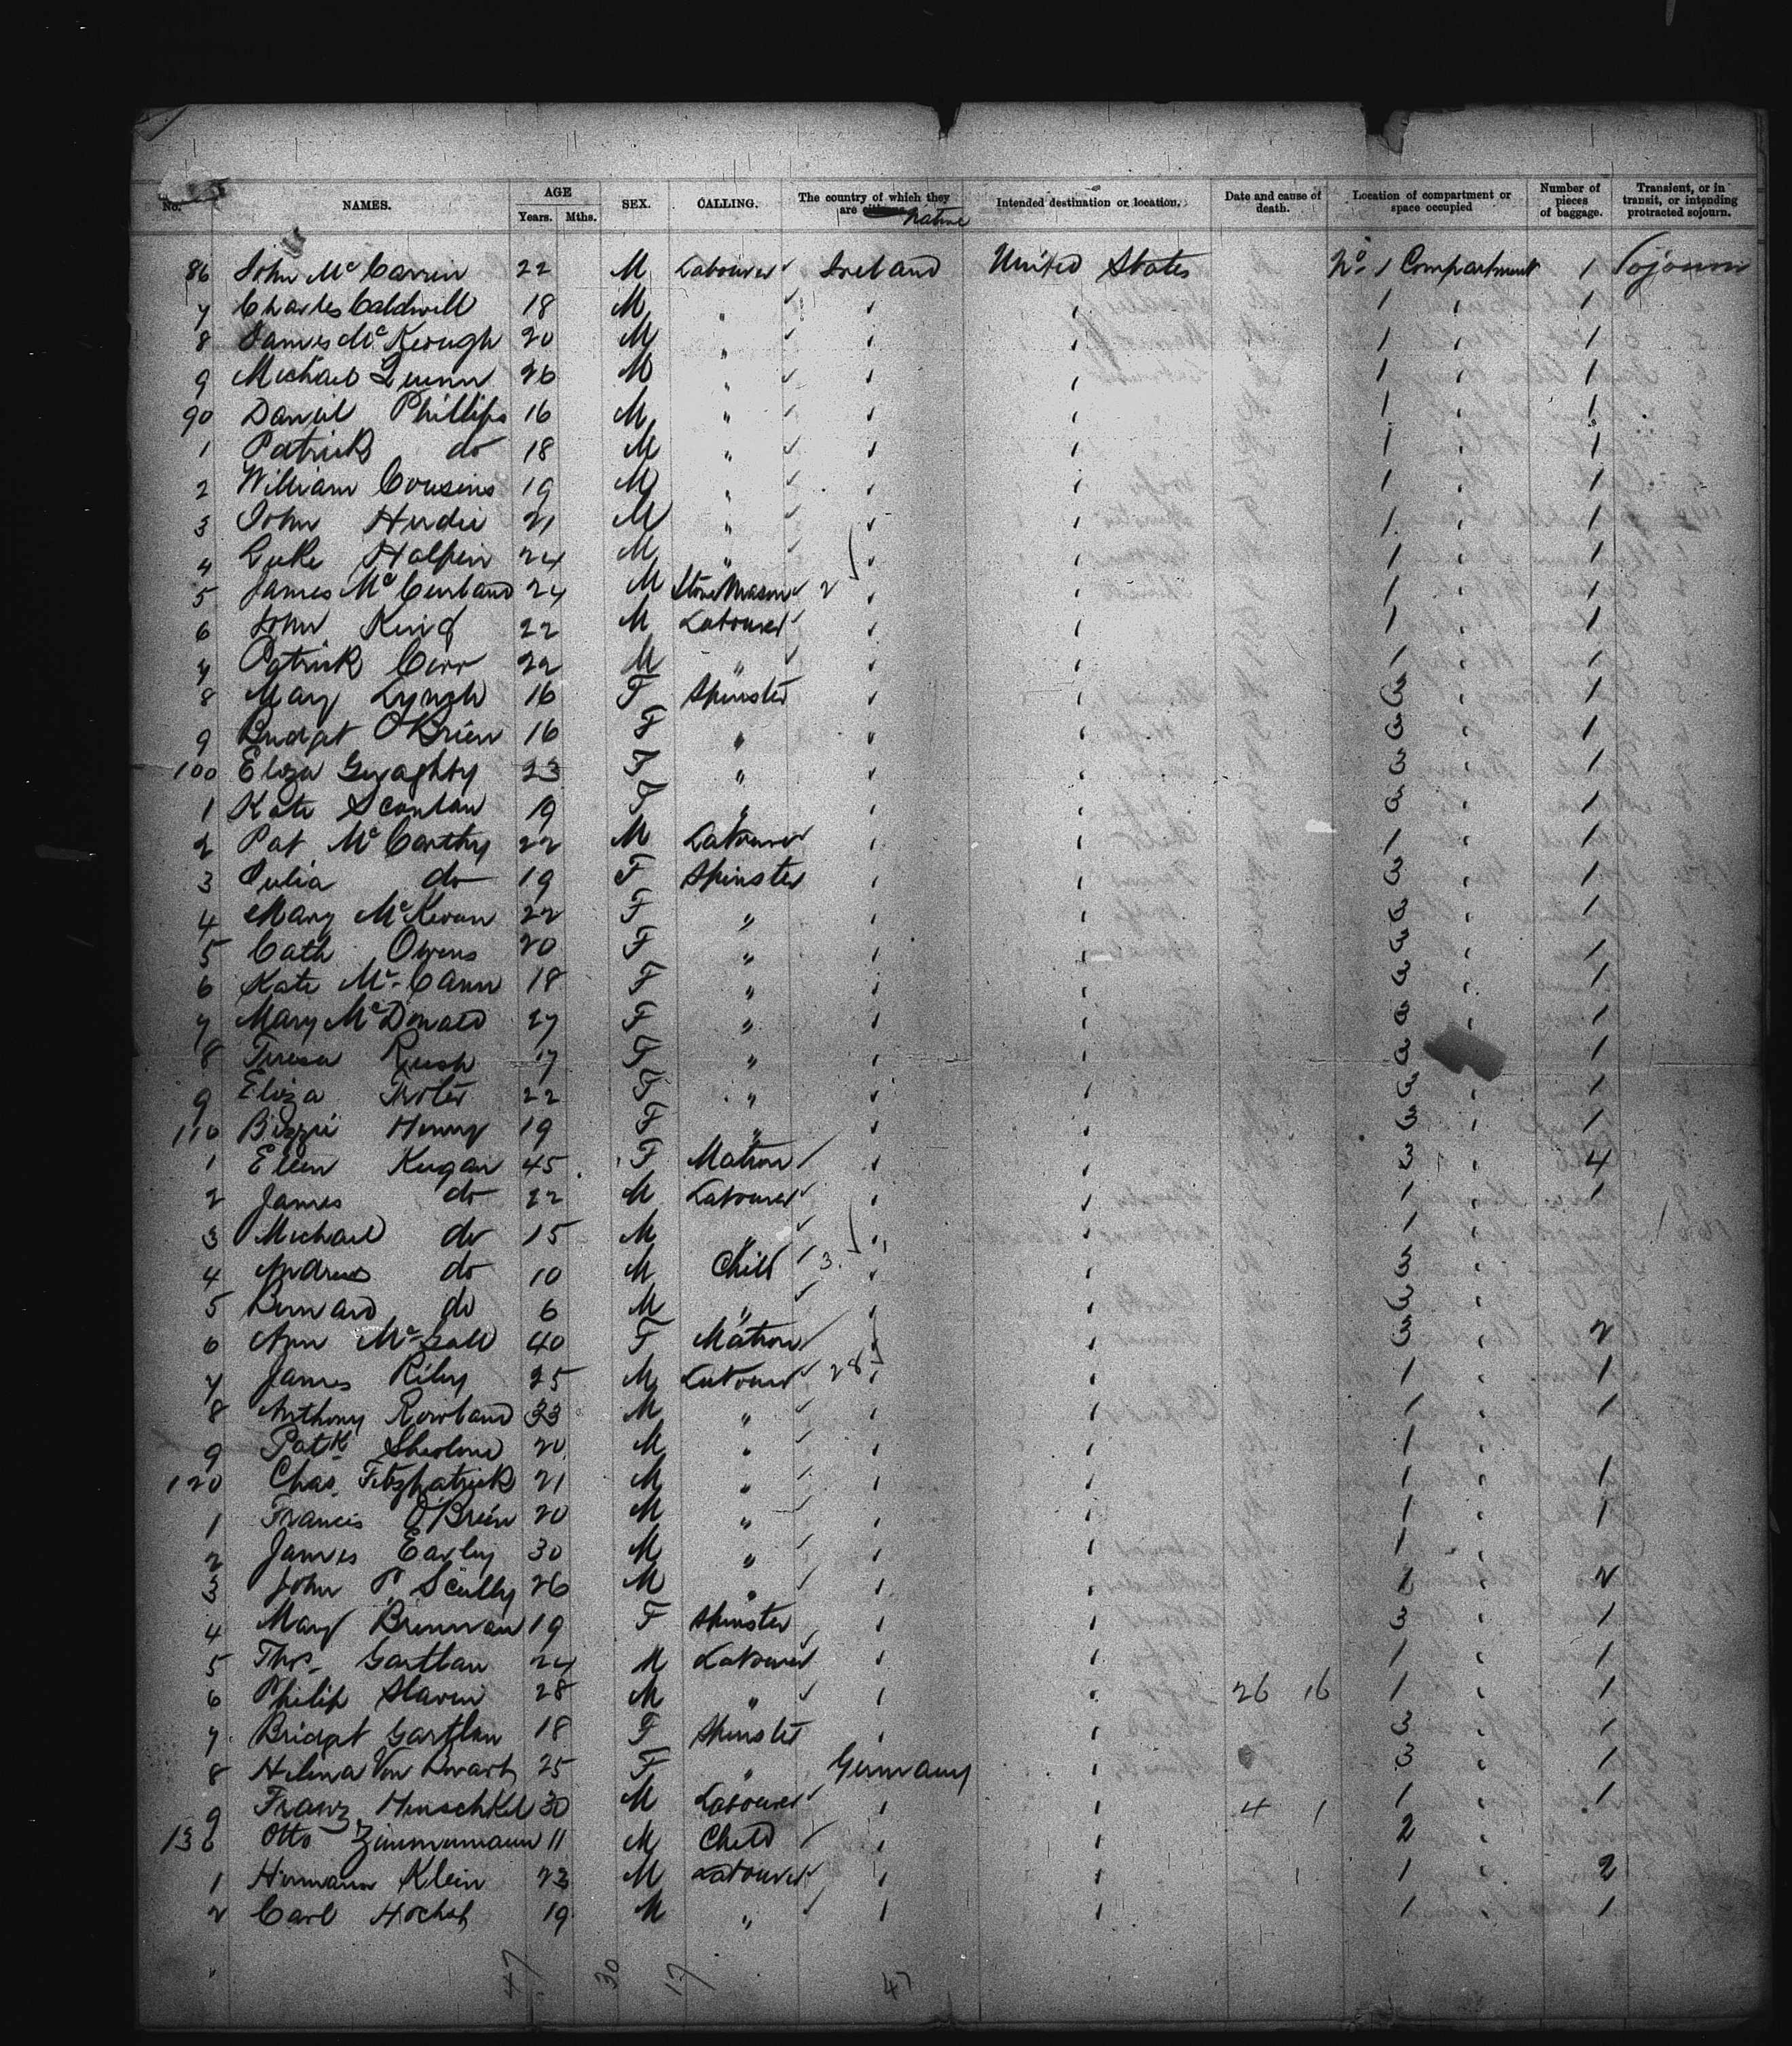 No. NAMES. AGE Years. Mths. SEX. CALLING. The country of which they are citizens Native Intended destination or location. Date and cause of death. Location of compartment or space occupied Number of pieces of baggage. Transient, or in transit, or intending protracted sojourn.
86 John Mc 22 M Labourer Ireland United States No. 1 Compartment 1 Sojourn
7 Charles Caldwell 18 M " 1 1
8 James McKeough 20 M " 1 1
9 Michael Quinn 26 M " 1 1
90 Daniel Phillips 16 M " 1 1
1 Patrick do 18 M " 1 1
2 William Cousins 19 M " 1 1
3 John 21 M " 1 1
4 Luke Halpin 24 M " 1 1
5 James 24 M Stone Mason 2 1 1
6 John King 22 M Labourer 1 1
7 Patrick Carr 22 M " 1 1
8 Mary Lynch 16 F Spinster 3 1
9 Bridget O'Brien 16 F " 3 1
100 Eliza Geraghty 23 F " 3 1
1 Kate Scanlan 19 F " 3 1
2 Pat McCarthy 22 M Labourer 1 1
3 Julia do 19 F Spinster 3 1
4 Mary McKeown 22 F " 3 1
5 Cath Owens 20 F " 3 1
6 Kate McCann 18 F " 3 1
7 Mary McDonald 27 F " 3 1
8 Teresa Rush 17 F " 3 1
9 Eliza 22 F " 3 1
110 Henry 19 F " 3 1
1 Ellen Keegan 45 F Matron 3 4
2 James do 22 M Labourer 1 1
3 Michael do 15 M " 1
4 Andrew do 10 M Child 13 3
5 Bernard do 6 M " 3
6 Ann McGall 40 F Matron 3 2
7 James Riley 25 M Labourer 28 1 1
8 Anthony Rowland 33 M " 1 1
9 Patk 20 M " 1
120 Chas. Fitzpatrick 21 M " 1 1
1 Francis O'Brien 20 M " 1 1
2 James Early 30 M " 1
3 John P. Scully 26 M " 1 2
4 Mary Brennan 19 F Spinster 3 1
5 Thos. Gartlan 24 M Labourer 1 1
6 Philip Slaven 28 M " 26 16 1 1
7 Bridget Gartlan 18 F Spinster 3 1
8 Helena Von 25 F " Germany 3 1
9 Franz Henschkel 30 M Labourer 4 1 1 1
130 Otto Zimmermann 11 M Child 2
1 Hermann Klein 23 M Labourer 1 2
2 Carl 19 M " 1 1
47 30 17 47